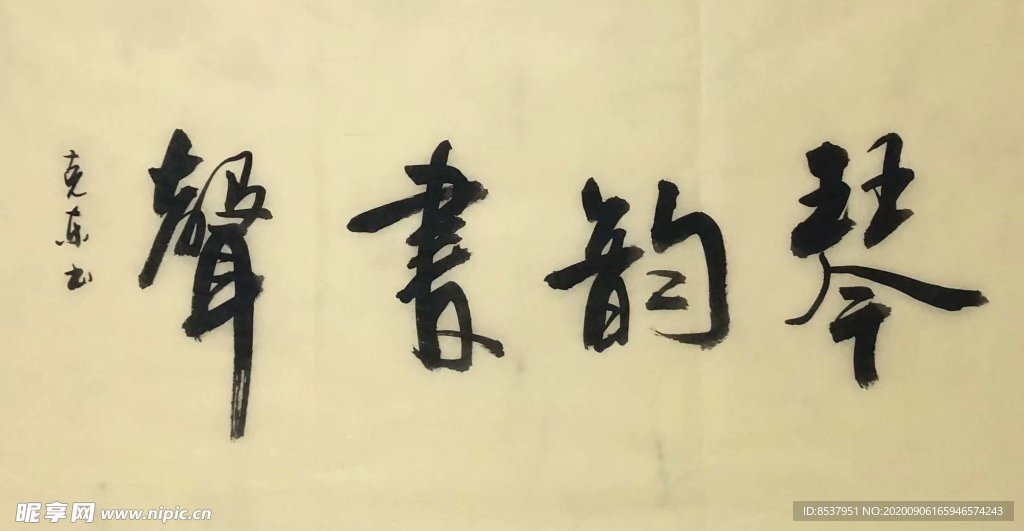 琴韵書聲
克东书
昵享网 www.nipic.cn
ID:8537951 NO:20200906165946574243